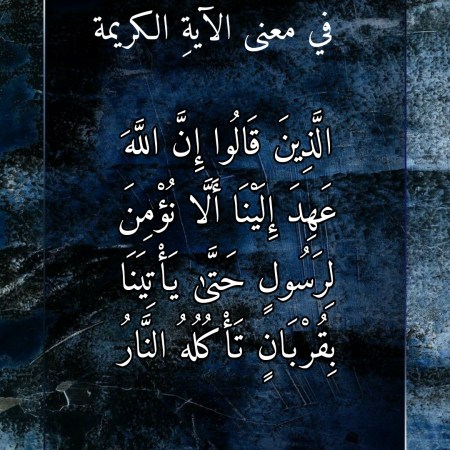 في معنى الآيةِ الكريمة
الَّذِينَ قَالُوا إِنَّ اللَّهَ
عَهِدَ إِلَيْنَا أَلَّا نُؤْمِنَ
لِرَسُولٍ حَتَّىٰ يَأْتِيَنَا
بِقُرْبَانٍ تَأْكُلُهُ النَّارُ